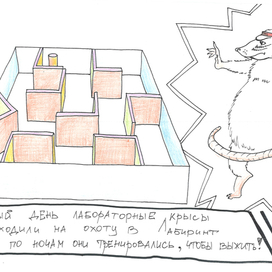 ЫЙ ДЕНЬ ЛАБОРАТОРНЫЕ КРЫСЫ
ХОДИЛИ НА ОХОТУ В ЛАБИРИНТ
ПО НОЧАМ ОНИ ТРЕНИРОВАЛИСЬ, ЧТОБЫ ВЫЖИТЬ!